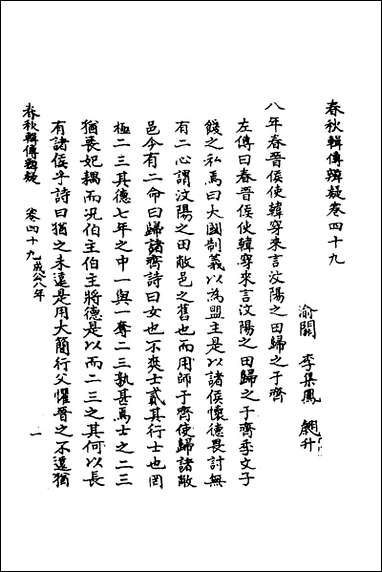 春秋輯傳辨疑卷四十九
渝關 李集鳳 翽升
八年春晉侯使韓穿來言汶陽之田歸之于齊
左傳曰春晉侯使韓穿來言汶陽之田歸之于齊季文子
餞之私焉曰大國制義以為盟主是以諸侯懷德畏討無
有二心謂汶陽之田敝邑之舊也而用師于齊使歸諸敝
邑今有二命曰歸諸齊詩曰女也不爽士貳其行士也罔
極二三其德七年之中一與一奪二三孰甚焉士之二三
猶喪妃耦而況伯主伯主將德是以而二三之其何以長
有諸侯乎詩曰猶之未遠是用大簡行父懼晉之不遠猶
春秋輯傳辨疑 卷四十九 成公八年 一